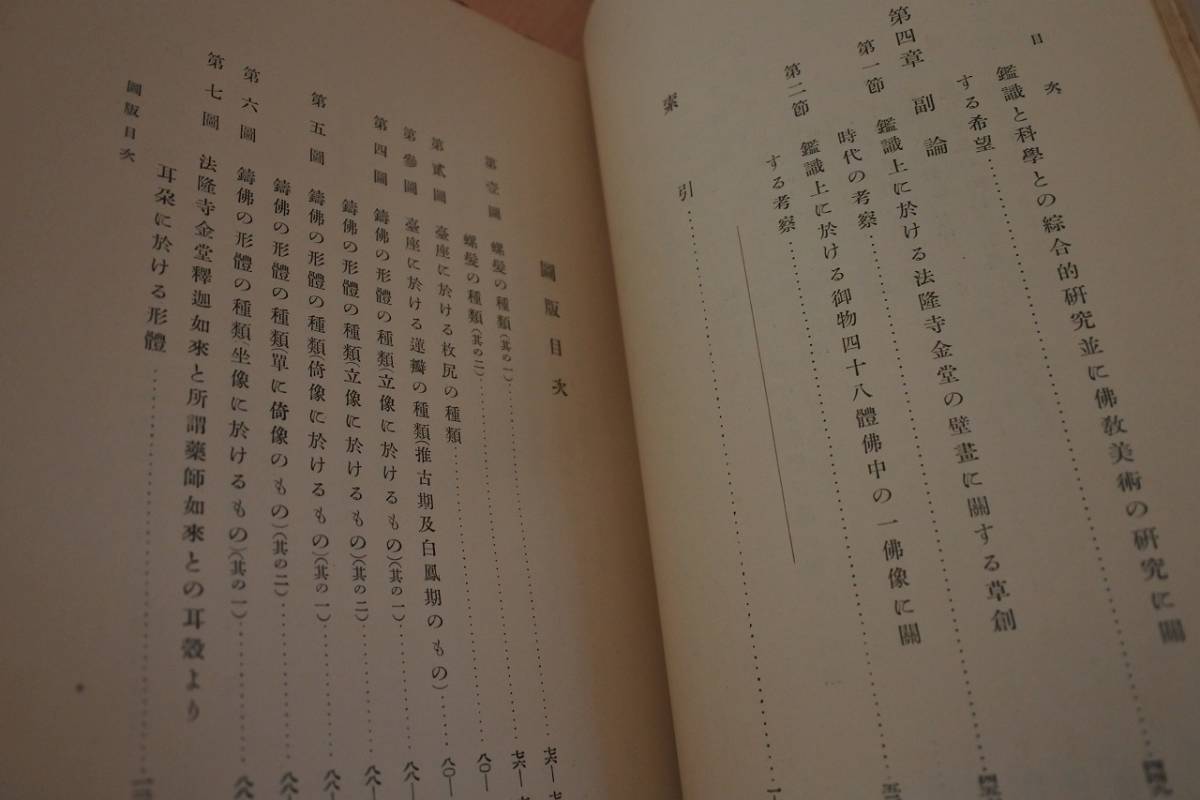 目次
鑑識と科學との綜合的研究並に佛敎美術の研究に關
する希望………………四四九
第四章 副論
第一節 鑑識上に於ける法隆寺金堂の壁畫に關する草創
時代の考察………………
第二節 鑑識上に於ける御物四十八體佛中の一佛像に關
する考察………………
索引………………一
圖版目次
第壹圖 螺髮の種類(其の一)………………七六—七
螺髮の種類(其の二)………………七六—
第貳圖 臺座に於ける枚尻の種類………………八〇—
第參圖 臺座に於ける蓮瓣の種類(推古期及白鳳期のもの)………………八〇—
第四圖 鑄佛の形體の種類(立像に於けるもの)(其の一)………………八八—
鑄佛の形體の種類(立像に於けるもの)(其の二)………………八八—
第五圖 鑄佛の形體の種類(倚像に於けるもの)(其の一)………………八八—
鑄佛の形體の種類(單に倚像のもの)(其の二)………………八八—
第六圖 鑄佛の形體の種類(坐像に於けるもの)(其の一)………………八八
第七圖 法隆寺金堂釋迦如來と所謂藥師如來との耳殼より
耳朶に於ける形體………………一
圖版目次